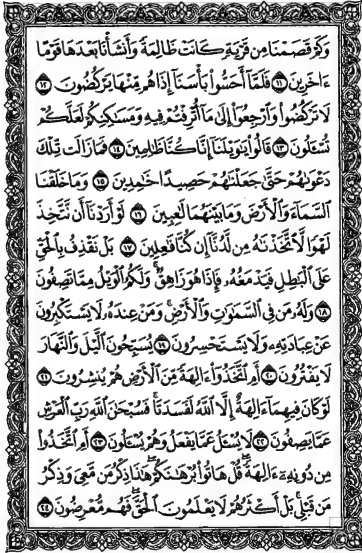 وَكَمْ قَصَمْنَا مِن قَرْيَةٍ كَانَتْ ظَالِمَةً وَأَنشَأْنَا بَعْدَهَا قَوْمًا
ءَاخَرِينَ ۝١١ فَلَمَّآ أَحَسُّوا۟ بَأْسَنَآ إِذَا هُم مِّنْهَا يَرْكُضُونَ ۝١٢
لَا تَرْكُضُوا۟ وَٱرْجِعُوٓا۟ إِلَىٰ مَآ أُتْرِفْتُمْ فِيهِ وَمَسَـٰكِنِكُمْ لَعَلَّكُمْ
تُسْـَٔلُونَ ۝١٣ قَالُوا۟ يَـٰوَيْلَنَآ إِنَّا كُنَّا ظَـٰلِمِينَ ۝١٤ فَمَا زَالَت تِّلْكَ
دَعْوَىٰهُمْ حَتَّىٰ جَعَلْنَـٰهُمْ حَصِيدًا خَـٰمِدِينَ ۝١٥ وَمَا خَلَقْنَا
ٱلسَّمَآءَ وَٱلْأَرْضَ وَمَا بَيْنَهُمَا لَـٰعِبِينَ ۝١٦ لَوْ أَرَدْنَآ أَن نَّتَّخِذَ
لَهْوًا لَّٱتَّخَذْنَـٰهُ مِن لَّدُنَّآ إِن كُنَّا فَـٰعِلِينَ ۝١٧ بَلْ نَقْذِفُ بِٱلْحَقِّ
عَلَى ٱلْبَـٰطِلِ فَيَدْمَغُهُۥ فَإِذَا هُوَ زَاهِقٌ ۚ وَلَكُمُ ٱلْوَيْلُ مِمَّا تَصِفُونَ
۝١٨ وَلَهُۥ مَن فِى ٱلسَّمَـٰوَٰتِ وَٱلْأَرْضِ ۚ وَمَنْ عِندَهُۥ لَا يَسْتَكْبِرُونَ
عَنْ عِبَادَتِهِۦ وَلَا يَسْتَحْسِرُونَ ۝١٩ يُسَبِّحُونَ ٱلَّيْلَ وَٱلنَّهَارَ
لَا يَفْتُرُونَ ۝٢٠ أَمِ ٱتَّخَذُوٓا۟ ءَالِهَةً مِّنَ ٱلْأَرْضِ هُمْ يُنشِرُونَ ۝٢١
لَوْ كَانَ فِيهِمَآ ءَالِهَةٌ إِلَّا ٱللَّهُ لَفَسَدَتَا ۚ فَسُبْحَـٰنَ ٱللَّهِ رَبِّ ٱلْعَرْشِ
عَمَّا يَصِفُونَ ۝٢٢ لَا يُسْـَٔلُ عَمَّا يَفْعَلُ وَهُمْ يُسْـَٔلُونَ ۝٢٣ أَمِ ٱتَّخَذُوا۟
مِن دُونِهِۦٓ ءَالِهَةً ۖ قُلْ هَاتُوا۟ بُرْهَـٰنَكُمْ ۖ هَـٰذَا ذِكْرُ مَن مَّعِىَ وَذِكْرُ
مَن قَبْلِى ۗ بَلْ أَكْثَرُهُمْ لَا يَعْلَمُونَ ٱلْحَقَّ ۖ فَهُم مُّعْرِضُونَ ۝٢٤